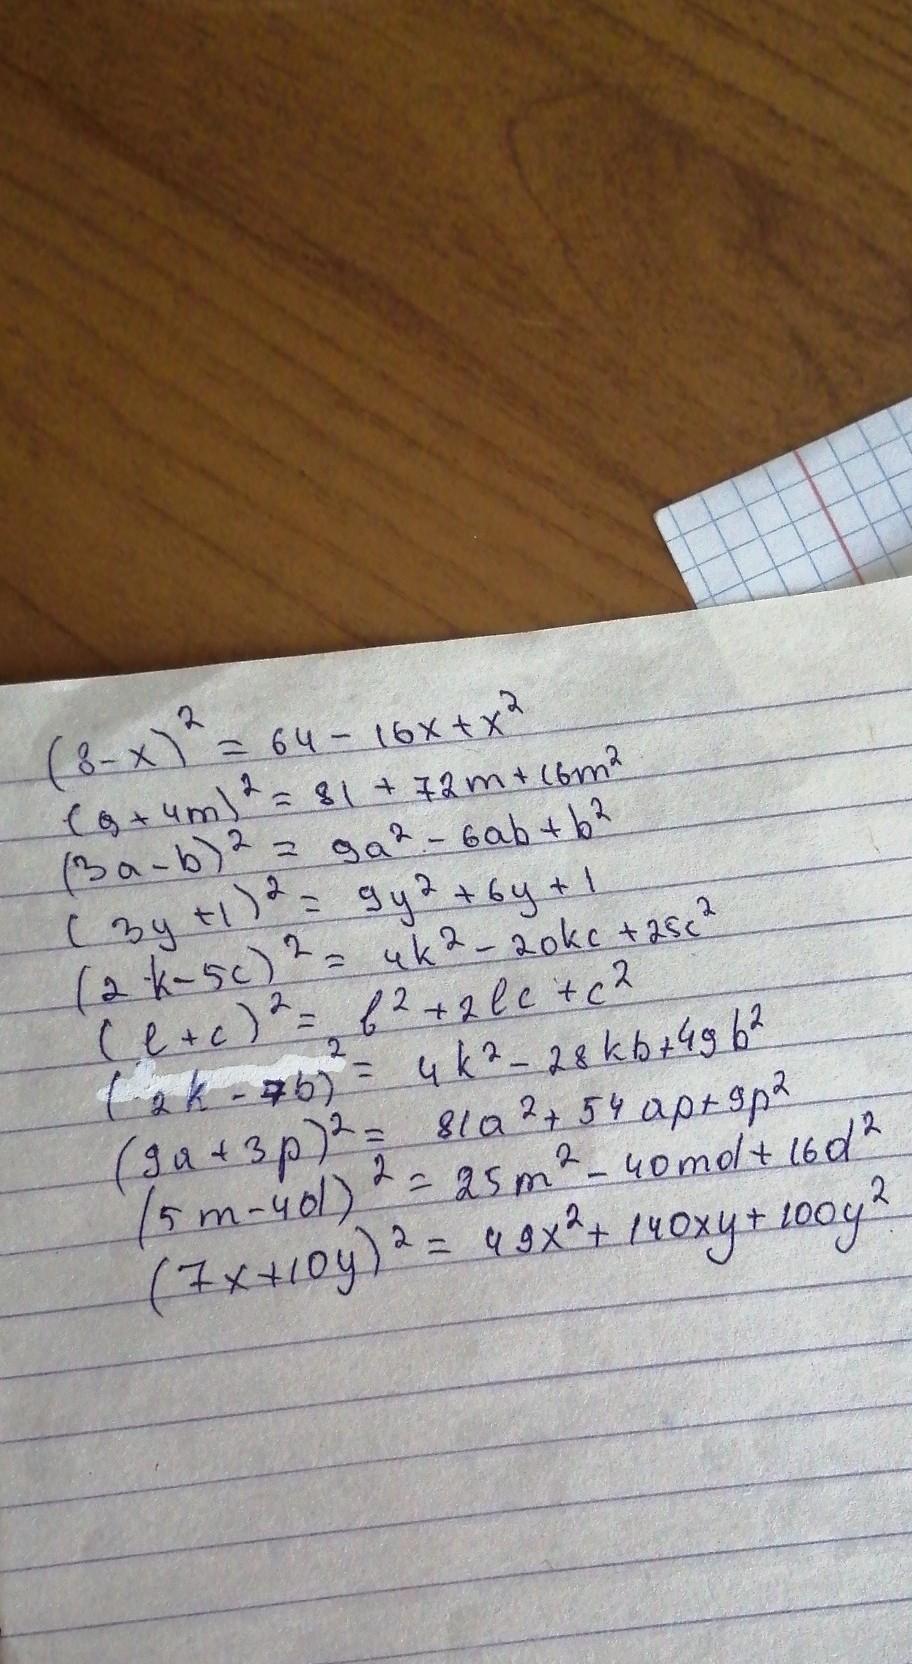 (8-x)² = 64 - 16x + x²
(9 + 4m)² = 81 + 72m + 16m²
(3a - b)² = 9a² - 6ab + b²
(3y + 1)² = 9y² + 6y + 1
(2k - 5c)² = 4k² - 20kc + 25c²
(l + c)² = l² + 2lc + c²
(2k - 7b)² = 4k² - 28kb + 49b²
(9a + 3p)² = 81a² + 54ap + 9p²
(5m - 4d)² = 25m² - 40md + 16d²
(7x + 10y)² = 49x² + 140xy + 100y²